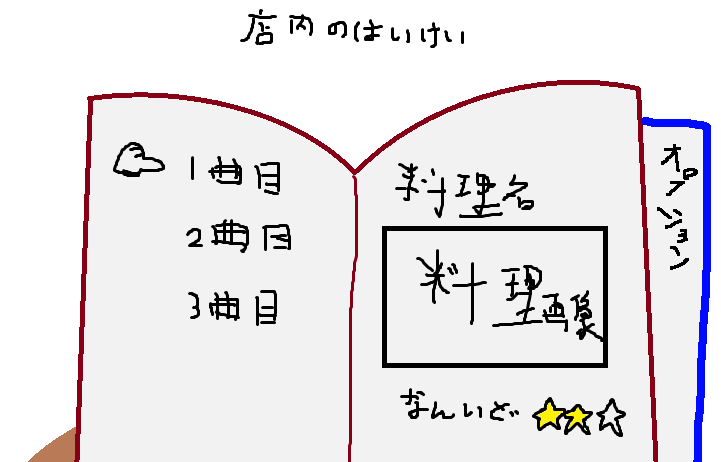 店内のはいけい
1曲目
2曲目
3曲目
料理名
料理画像
なんいど
オプション